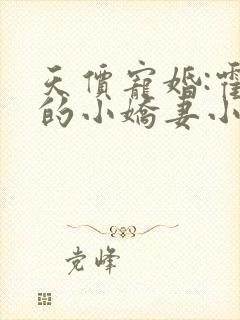 天價寵婚:霍
的小嬌妻小
党峰